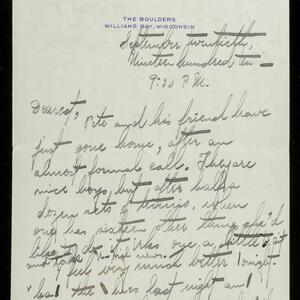 THE BOULDERS
WILLIAMS BAY, WISCONSIN
September twentieth,
Nineteen hundred ten
9:30 P.M.
Dearest,
Pete and his friend have
just gone home, after an
almost formal call. They are
nice boys, but after half a
dozen sets of tennis, when
one has sixteen other things she'd
like to do, it irks one, a little
feel very much better tonight.
had the lines last night and